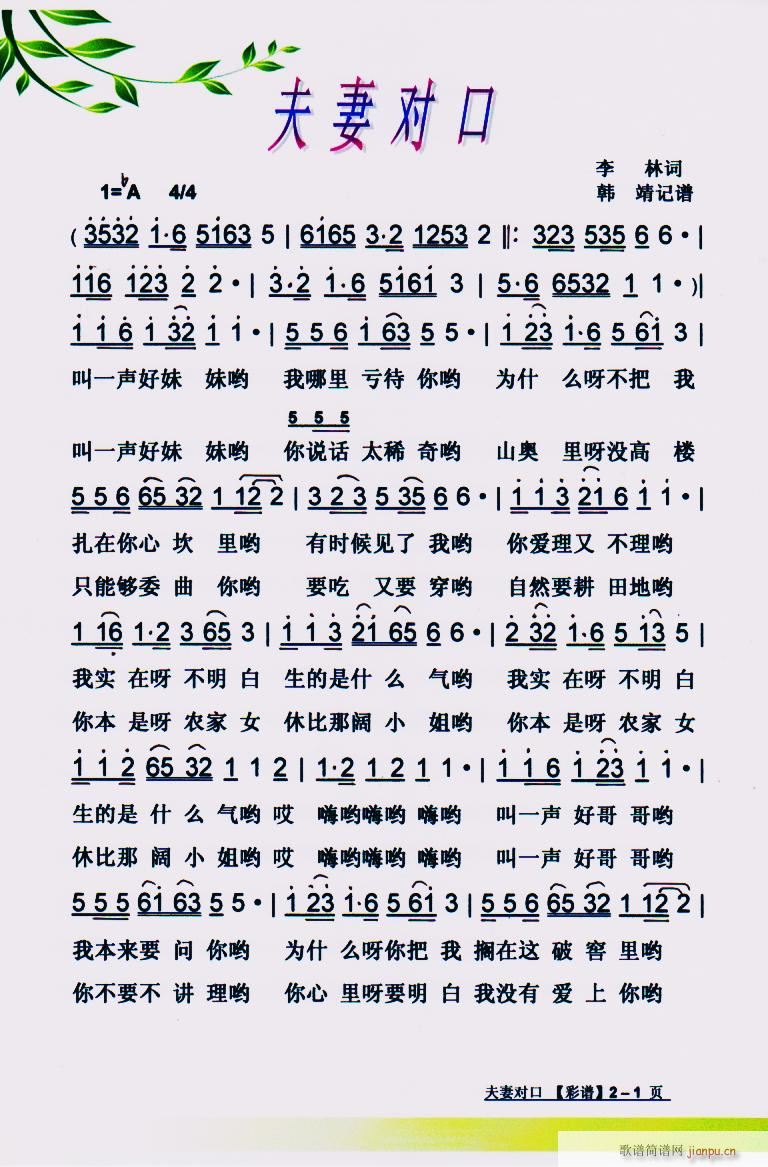 夫妻对口
李 林词
1=♭A 4/4 韩 靖记谱
(3532 1·6 5163 5 | 6165 3·2 1253 2 ‖: 323 535 6 6· |
116 123 2 2· | 3·2 1·6 5161 3 | 5·6 6532 1 1· )|
1 1 6 1 32 1 1· | 5 5 6 1 63 5 5· | 1 23 1·6 5 61 3 |
叫一声好妹 妹哟 我哪里 亏待 你哟 为什 么呀不把 我
5 5 5
叫一声好妹 妹哟 你说话 太稀 奇哟 山奥 里呀没高 楼
5 5 6 65 32 1 12 2 | 3 2 3 5 35 6 6· | 1 1 3 21 6 1 1· |
扎在你心 坎 里哟 有时候见了 我哟 你爱理又 不理哟
只能够委 曲 你哟 要吃 又要 穿哟 自然要耕 田地哟
1 16 1·2 3 65 3 | 1 1 3 21 65 6 6· | 2 32 1·6 5 13 5 |
我实 在呀 不明 白 生的是什 么 气哟 我实 在呀 不明 白
你本 是呀 农家 女 休比那阔 小 姐哟 你本 是呀 农家 女
1 1 2 65 32 1 1 2 | 1·2 1 2 1 1· | 1 1 6 1 23 1 1· |
生的是 什 么 气哟 哎 嗨哟嗨哟 嗨哟 叫一声 好哥 哥哟
休比那 阔 小 姐哟 哎 嗨哟嗨哟 嗨哟 叫一声 好哥 哥哟
5 5 5 61 63 5 5· | 1 23 1·6 5 61 3 | 5 5 6 65 32 1 12 2 |
我本来要 问 你哟 为什 么呀你把 我 搁在这 破窑 里哟
你不要不 讲 理哟 你心 里呀要明 白 我没有 爱 上 你哟
夫妻对口 【彩谱】2－1 页
歌谱简谱网
jianpu.cn